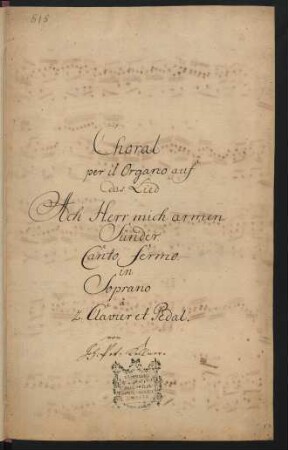 515
Choral
per il Organo auf
das Lied
Ach Herr mich armen
Sünder
Canto fermo
in
Soprano
à
2 Clavier et Pedal.